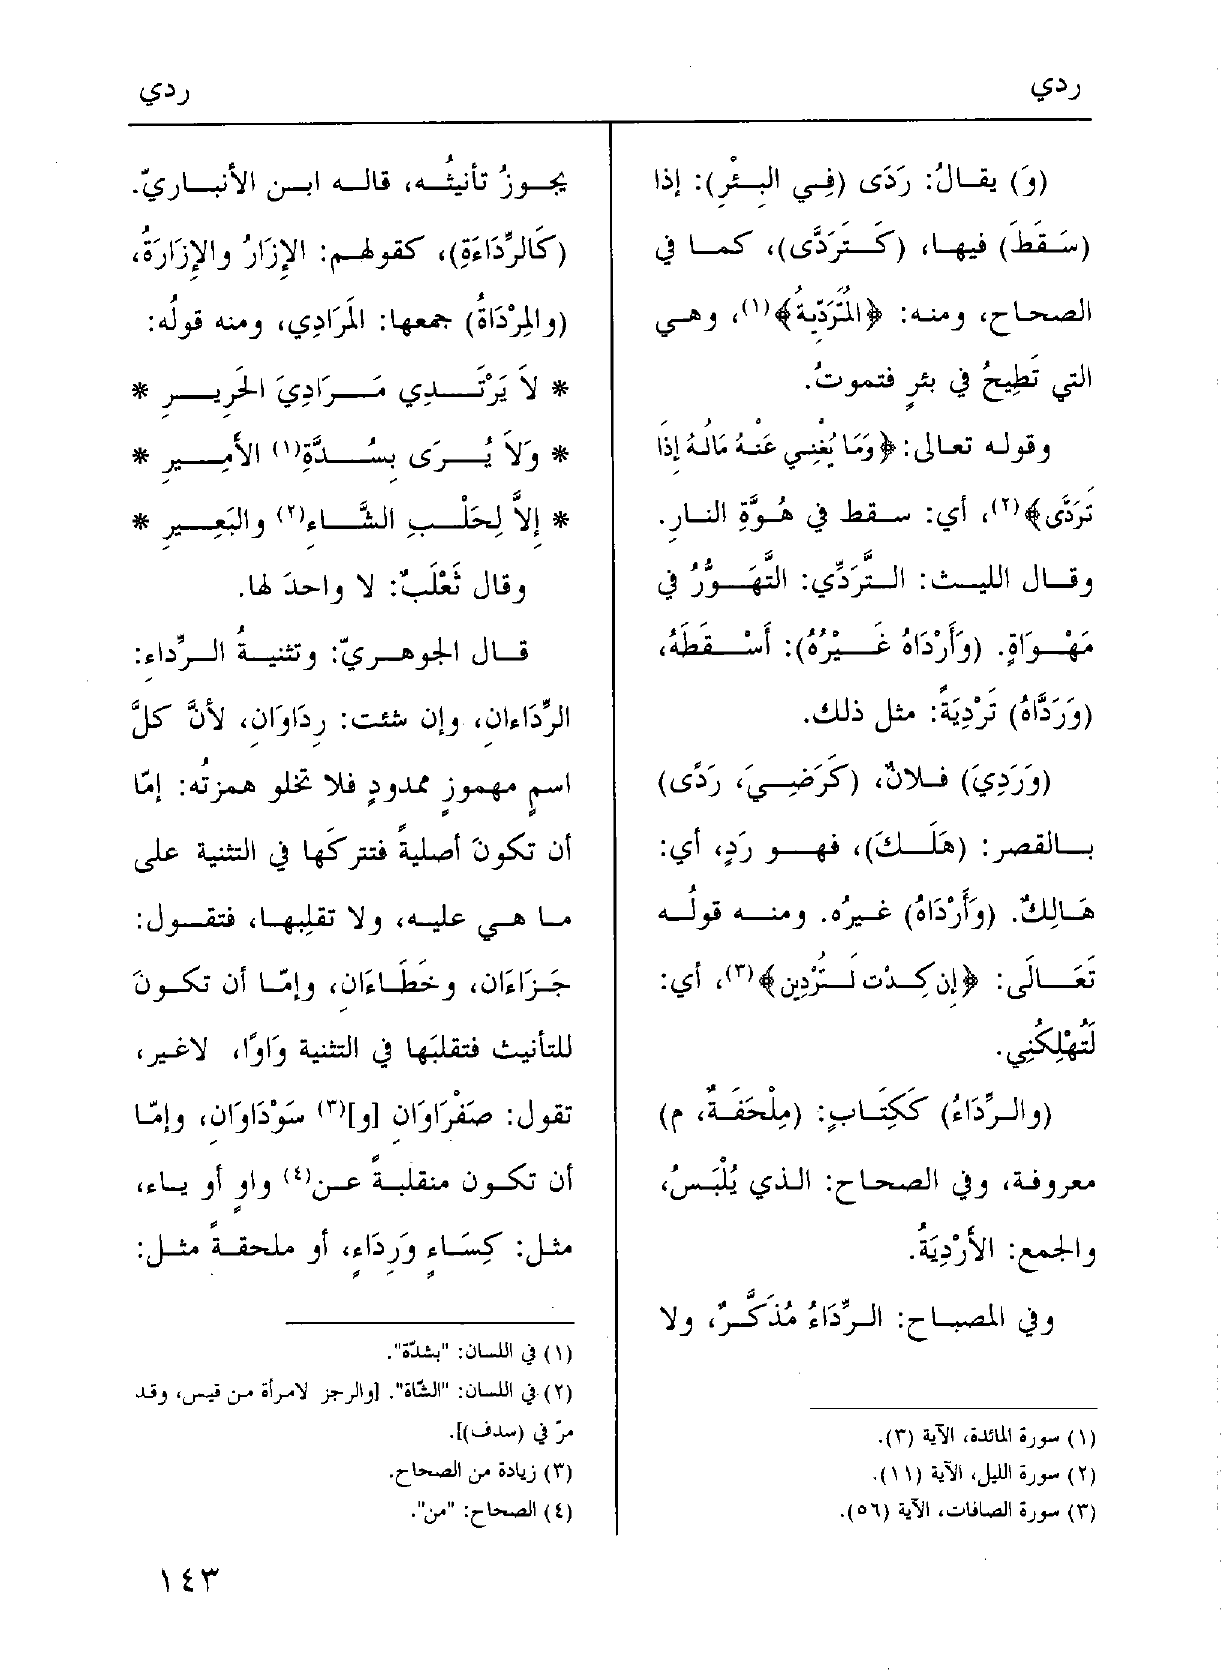 ردي
ردي
(وَ) يقالُ: رَدَى (فِي البِئْرِ): إذا
(سَقَطَ) فيها، (كَتَرَدَّى)، كما في
الصحاح، ومنه: ﴿الْمُتَرَدِّيَةُ﴾(١)، وهي
التي تَطِيحُ في بئرٍ فتموتُ.
وقوله تعالى: ﴿وَمَا يُغْنِي عَنْهُ مَالُهُ إِذَا
تَرَدَّى﴾(٢)، أي: سقط في هُوَّةِ النارِ.
وقال الليث: التَّرَدِّي: التَّهَوُّرُ في
مَهْوَاةٍ. (وَأَرْدَاهُ غَيْرُهُ): أَسْقَطَهُ،
(وَرَدَّاهُ) تَرْدِيَةً: مثل ذلك.
(وَرَدِيَ) فلانٌ، (كَرَضِيَ، رَدًى)
بالقصر: (هَلَكَ)، فهو رَدٍ، أي:
هَالِكٌ. (وَأَرْدَاهُ) غيرُه. ومنه قولُه
تَعَالَى: ﴿إِن كِدْتَ لَتُرْدِينِ﴾(٣)، أي:
لَتُهْلِكُنِي.
(والرِّدَاءُ) كَكِتَابٍ: (مِلْحَفَةٌ، م)
معروفة، وفي الصحاح: الذي يُلْبَسُ،
والجمع: الأَرْدِيَةُ.
وفي المصباح: الرِّدَاءُ مُذَكَّرٌ، ولا
(١) سورة المائدة، الآية (٣).
(٢) سورة الليل، الآية (١١).
(٣) سورة الصافات، الآية (٥٦).
يجوزُ تأنيثُه، قاله ابن الأنباريّ.
(كَالرِّدَاءَةِ)، كقولهم: الإزَارُ والإزَارَةُ،
(والمِرْدَاةُ) جمعها: المَرَادِي، ومنه قولُه:
* لاَ يَرْتَدِي مَرَادِيَ الحَرِيرِ *
* وَلاَ يُرَى بِسُدَّةِ(١) الأَمِيرِ *
* إِلاَّ لِحَلْبِ الشَّاءِ(٢) والبَعِيرِ *
وقال ثَعْلَبٌ: لا واحدَ لها.
قال الجوهريّ: وتثنيةُ الرِّداء:
الرِّدَاءانِ، وإن شئت: رِدَاوَانِ، لأنَّ كلَّ
اسمٍ مهموزٍ ممدودٍ فلا تخلو همزتُه: إمّا
أن تكونَ أصليةً فتتركَها في التثنية على
ما هي عليه، ولا تقلِبها، فتقول:
جَزاءَانِ، وخَطَاءَانِ، وإمّا أن تكونَ
للتأنيث فتقلبَها في التثنية وَاوًا، لاغير،
تقول: صَفْرَاوَانِ [و](٣) سَوْدَاوَانِ، وإمّا
أن تكون منقلبةً عن(٤) واوٍ أو ياء،
مثل: كِسَاءٍ وَرِدَاءٍ، أو ملحقةً مثل:
(١) في اللسان: "بشدّة".
(٢) في اللسان: "الشّاة". [والرجز لامرأة من قيس، وقد
مرّ في (سدف)].
(٣) زيادة من الصحاح.
(٤) الصحاح: "من".
١٤٣